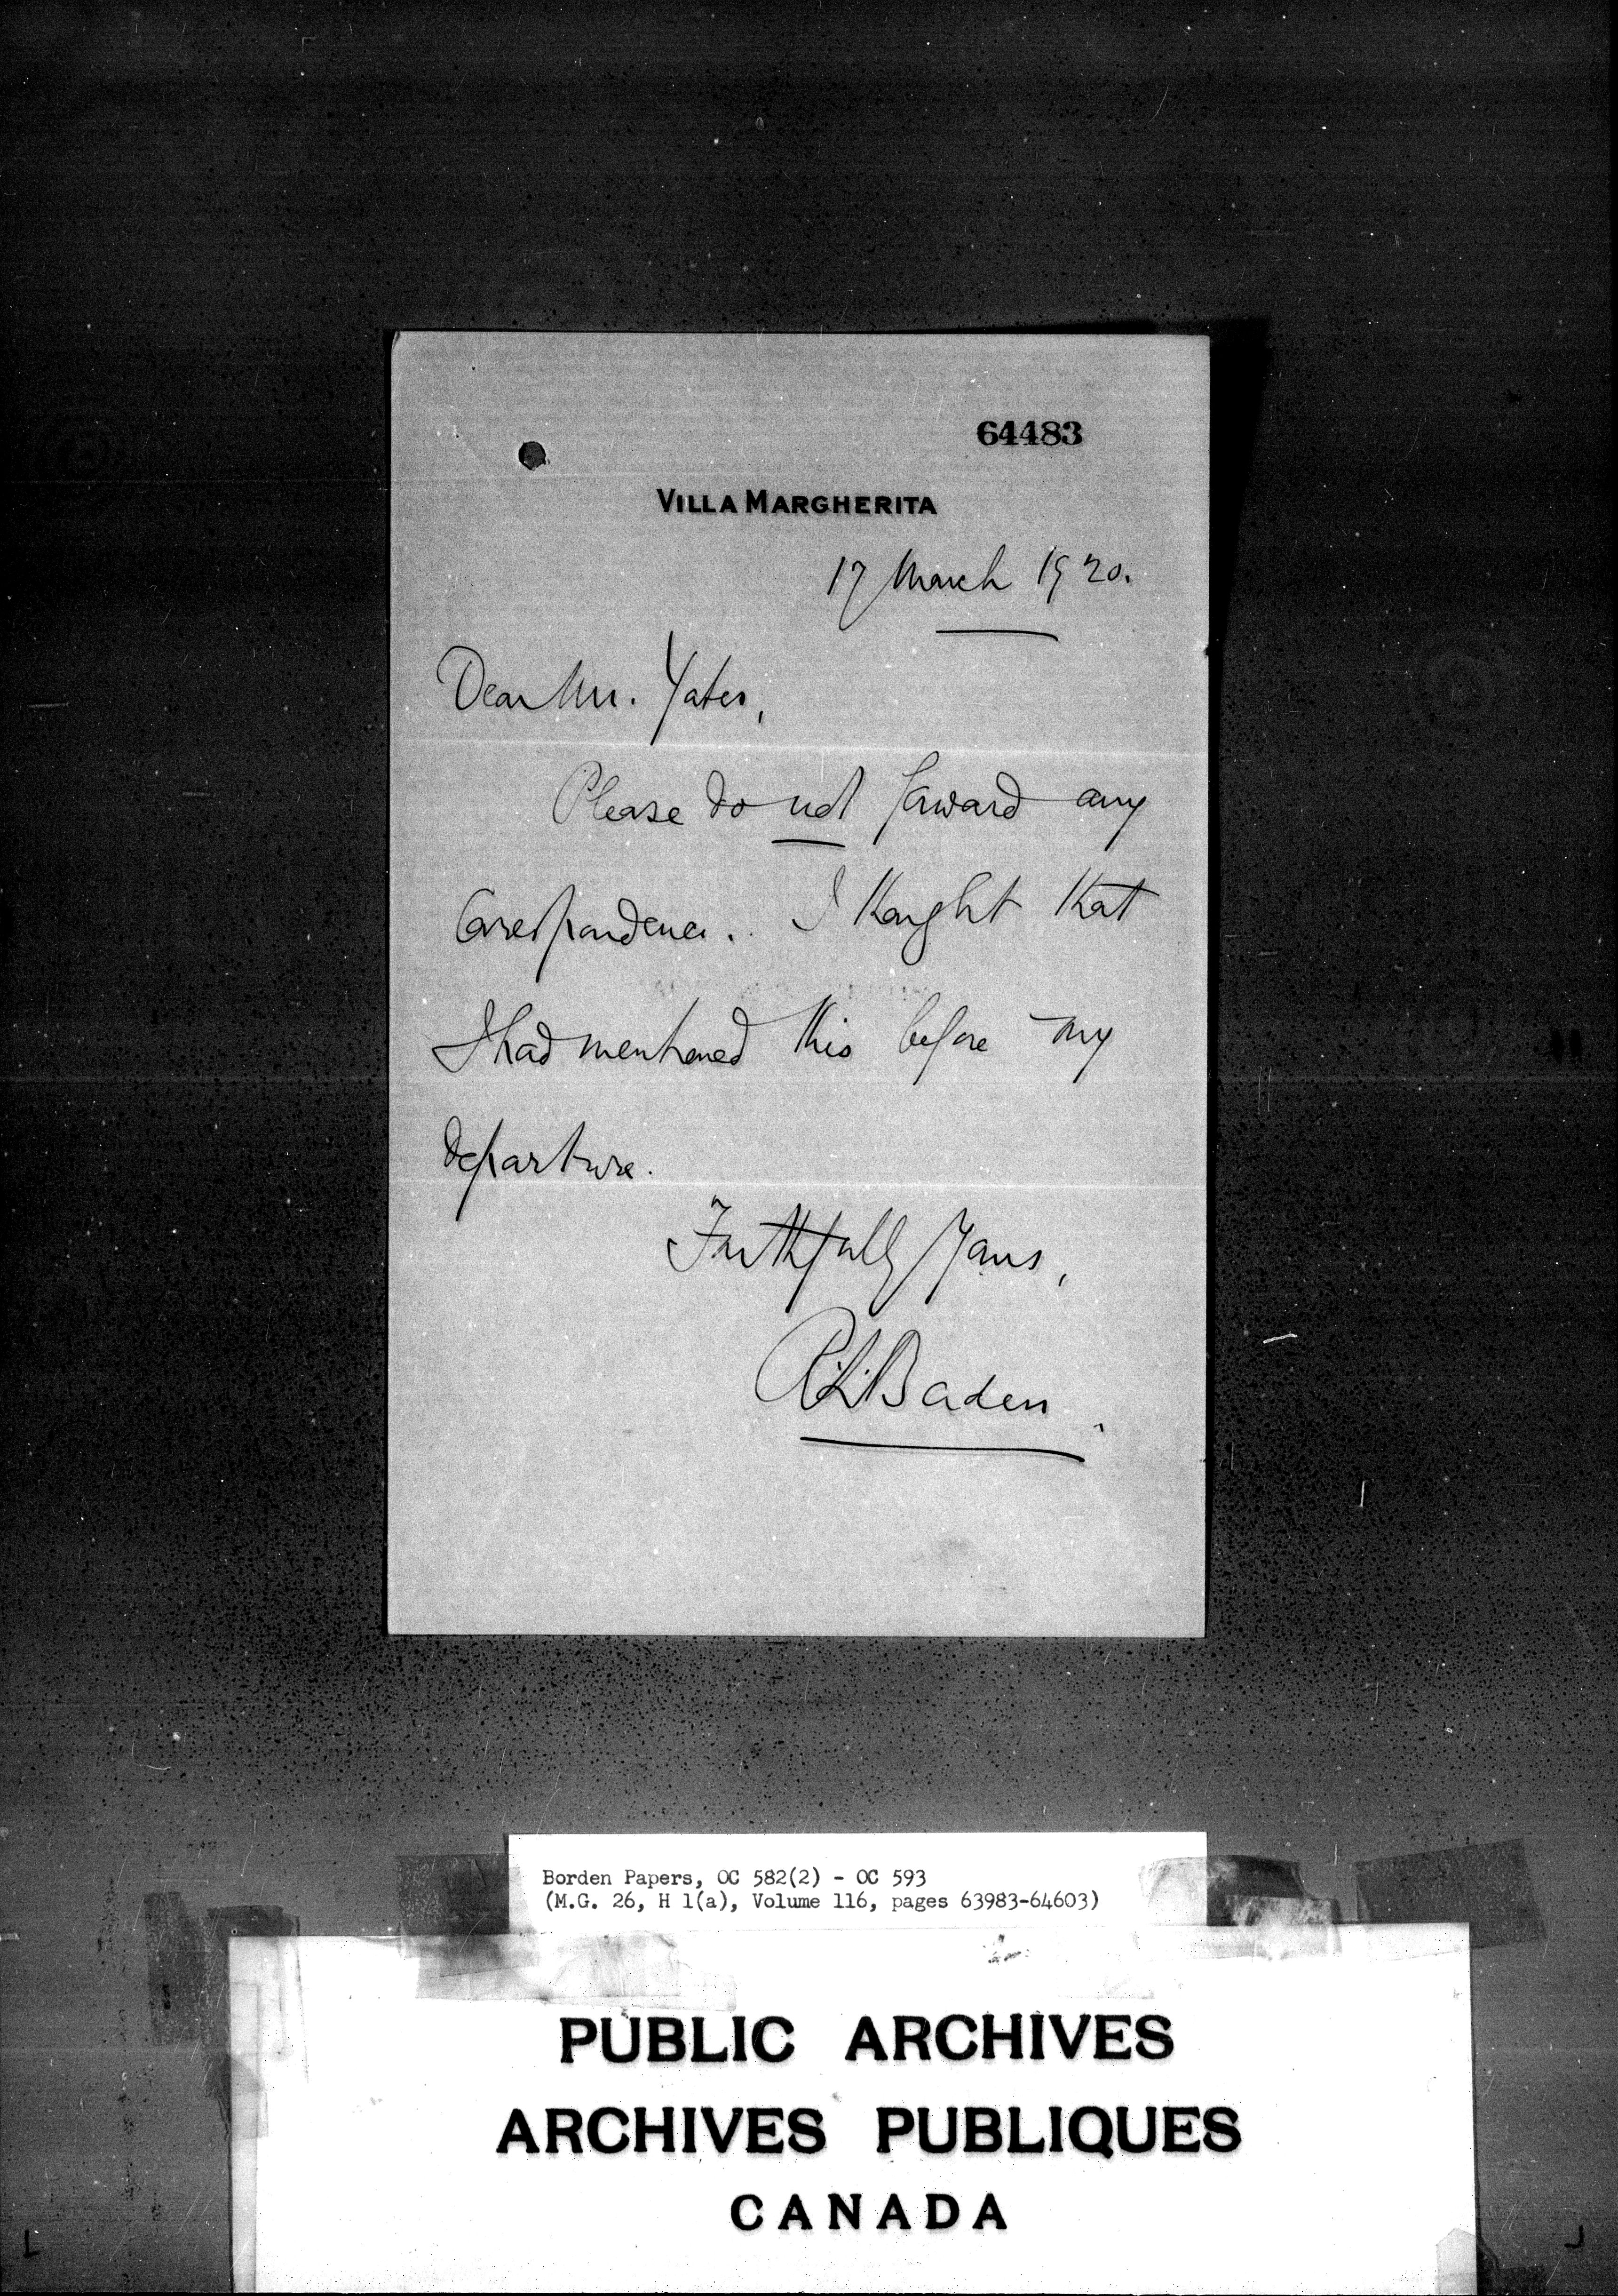 64483
VILLA MARGHERITA
17 March 1920.
Dear Mr. Yates,
Please do not forward any
Correspondence. I thought that
I had mentioned this before my
departure.
Faithfully Yours,
R.L. Borden
Borden Papers, OC 582(2) - OC 593
(M.G. 26, H 1(a), Volume 116, pages 63983-64603)
PUBLIC ARCHIVES
ARCHIVES PUBLIQUES
CANADA